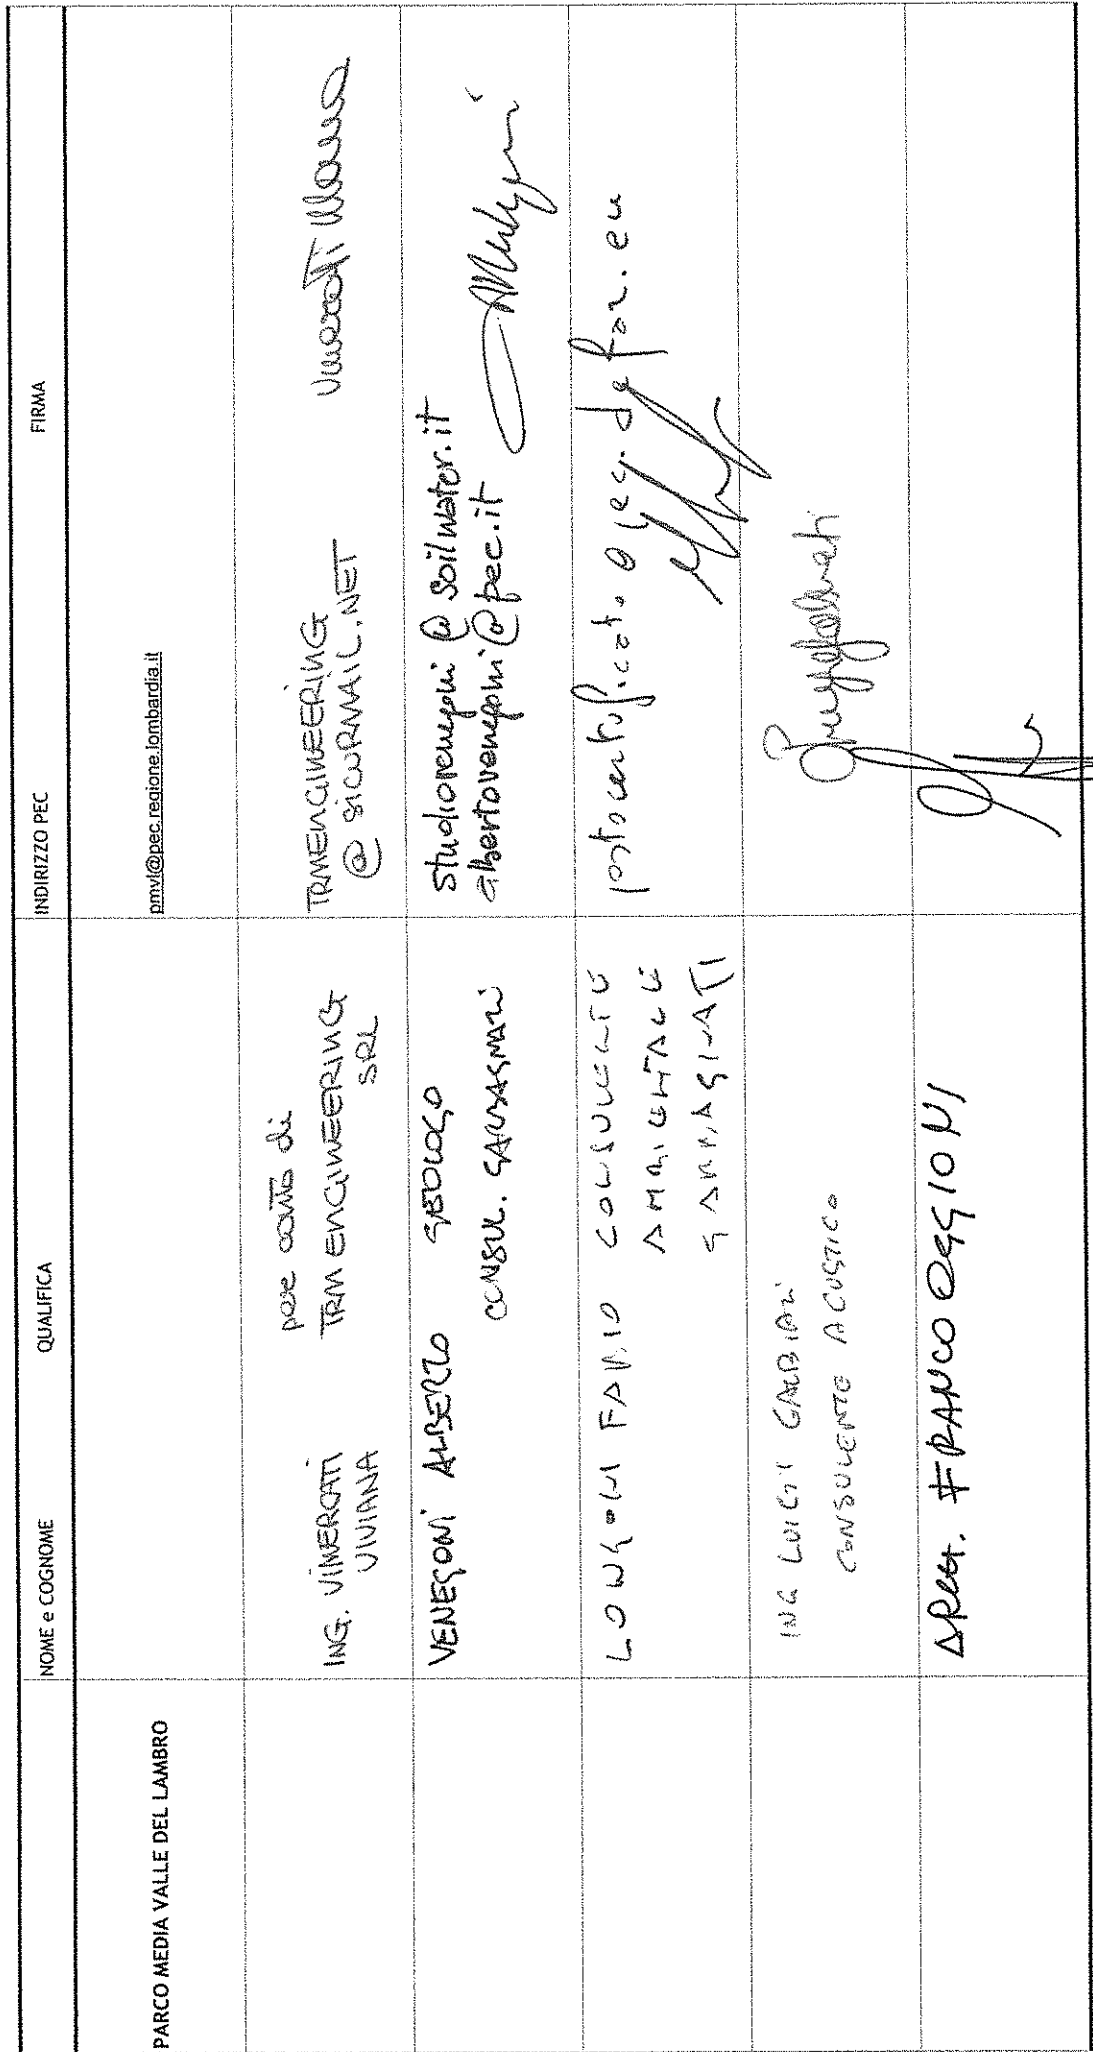 NOME e COGNOME QUALIFICA INDIRIZZO PEC FIRMA
PARCO MEDIA VALLE DEL LAMBRO
pmvl@pec.regione.lombardia.it
ING. VIMERCATI
VIVIANA
per conto di
TRM ENGINEERING
SRL
TRMENGINEERING
@ SICURMAIL.NET
VENEGONI ALBERTO GEOLOGO
CONSUL.
studiovenegoni@soilwater.it
albertovenegoni@pec.it
LONGONI FABIO CONSULENTE
AMBIENTALE
ING LUIGI GALBIATI
CONSULENTE ACUSTICO
ARCH. FRANCO OGGIONI